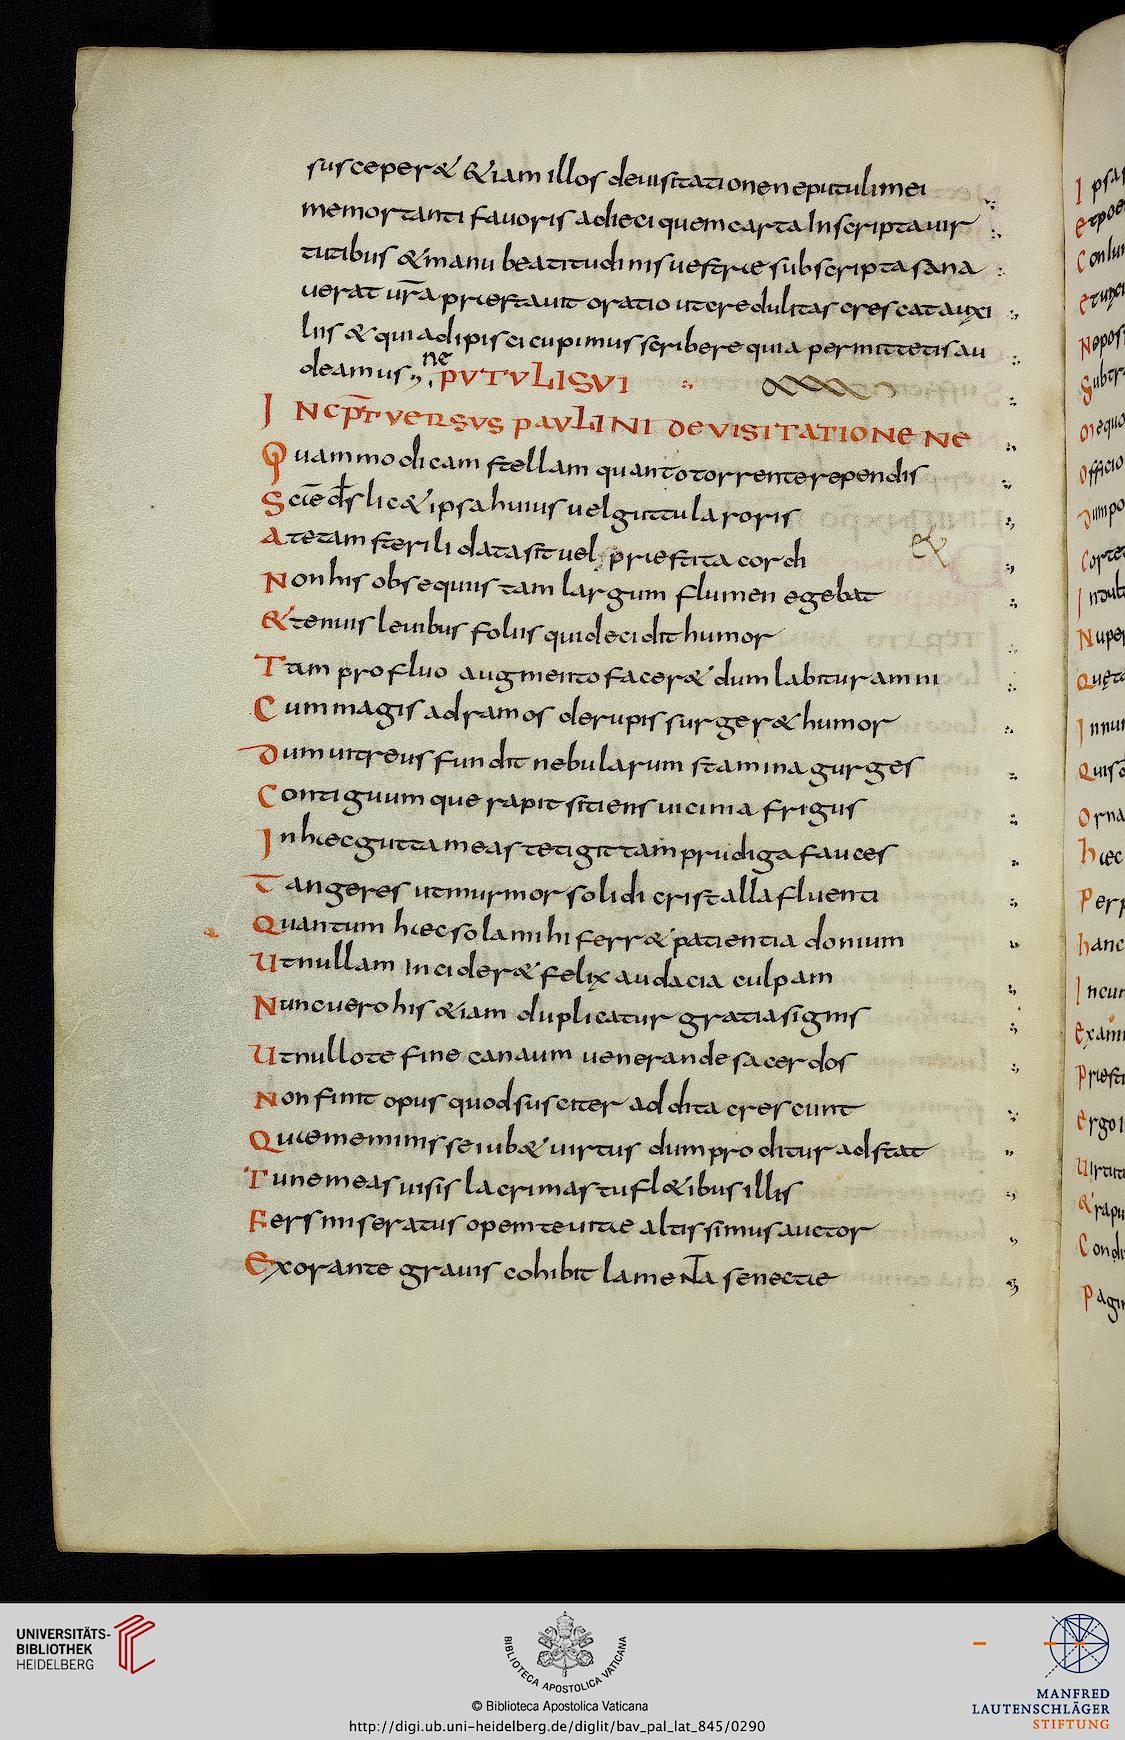 susceper& &iam illos deuisitationen eputuli mei
memortanti fauoris adieci quem carta Inscripta uir
tutibus & manu beatitudinis uestrae subscripta sana
uerat ur̄a praestauit oratio ut credulitas crescat auxi
liis & qui adipisci cupimus scribere quia permittetis au
deamus ne PUTULISUI
INCPT̄ VERSVS PAVLINI DE VISITATIONE NE
Quam modicam stellam quanto torrente rependis
Scīe d̄s lic& ipsa huius uel guttula roris
Atetam sterili data sit uel praestita cordi
&
Non his obsequiis tam largum flumen egebat
&tenuis leuibus foliis qui decidit humor
Ttam profluo augmento facer& dum labitur amni
Cum magis ad ramos derupis surger& humor
Dum uitreus fundit nebularum stamina gurges
Contiguumque rapit sitiens uicinia frigus
In haec gutta meas tetigit tam prudiga fauces
Tangeres ut murmor solidi cristalla fluenti
Quantum haec sola mihi ferr& patientia donum
Ut nullam Incider& felix audacia culpam
Nunc uero his &iam duplicatur gratia signis
Ut nullo te fine canaum uenerande sacerdos
Non finit opus quod susciter addita crescunt
Quae meminisse iub& uirtus dum proditur adstat
Tune meas uisis lacrimas tu fl&ibus illis
Fers miseratus opem te uitae altissimus auctor
Exorante grauis cohibit lamenta senectae
Ipsa
etpoe
Conlu
Neposi
Subtr
Officio
Dumpo
Corte
Nuper
Innu
Quisc
Orna
haec
Perp
hanc
Incum
Exam
ergo
&rapu
Condi
Pagin
UNIVERSITÄTS-
BIBLIOTHEK
HEIDELBERG
BIBLIOTECA APOSTOLICA VATICANA
© Biblioteca Apostolica Vaticana
http://digi.ub.uni-heidelberg.de/diglit/bav_pal_lat_845/0290
MANFRED
LAUTENSCHLÄGER
STIFTUNG